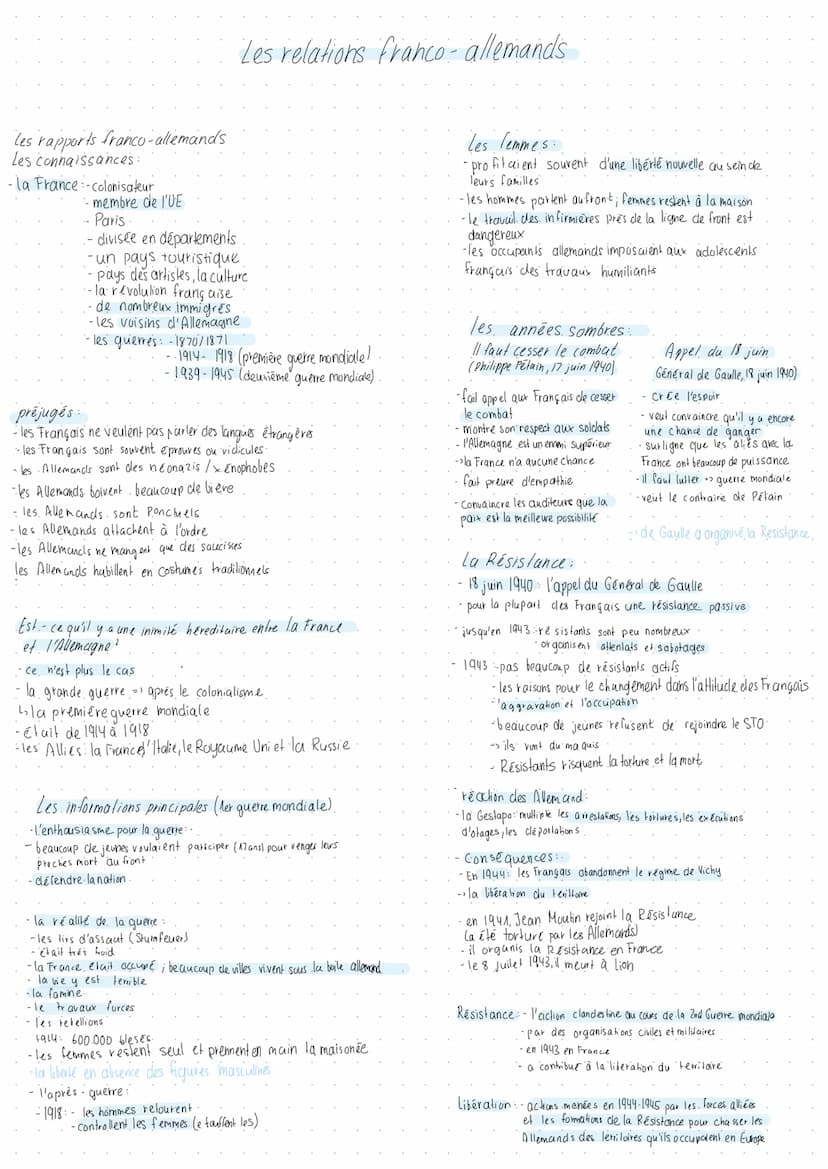 Les relations franco-allemands
Les rapports franco-allemands
Les connaissances:
- la France: - colonisateur
- membre de l'UE
- Paris
- divisée en départements
- un pays touristique
- pays des artistes, la culture
- la révolution française
- de nombreux immigrés
- les voisins d'Allemagne
- les guerres: - 1870/1871
- 1914 - 1918 (première guerre mondiale)
- 1939-1945 (deuxième guerre mondiale)
préjugés:
- les Français ne veulent pas parler des langues étrangères
- les Français sont souvent éprouves ou ridicules
- les Allemands sont des néonazis / xenophobes
- les Allemands boivent beaucoup de bière
- les Allemands sont Ponctuels
- les Allemands attachent à l'ordre
- les Allemands ne mangent que des saucisses
les Allemands habillent en costumes traditionnels
Est-ce qu'il y a une inimité héreditaire entre la France
et l'Allemagne?
- ce n'est plus le cas
- la grande guerre => après le colonialisme
↳ la première guerre mondiale
- était de 1914 à 1918
- les Alliés: la France, l'Italie, le Royaume Uni et la Russie
Les informations principales (1er guerre mondiale)
- l'enthousiasme pour la guerre:
- beaucoup de jeunes voulaient participer (17ans) pour venger leurs
proches mort au front
- défendre la nation
- la réalité de la guerre:
- les tirs d'assaut (Sturmfeuer)
- était très froid
- la France était occupé; beaucoup de villes vivent sous la botte allemand
- la vie y est terrible
- la famine
- le travaux forces
- les rebellions
1914: 600.000 blesés
- les femmes restent seul et prennent en main la maisonée
- la liberté en absence des figures masculins
- l'après-guerre:
- 1918: - les hommes retourent
- controllent les femmes (etouffent les)
Les femmes:
- profitaient souvent d'une liberté nouvelle au sein de
leurs familles
- les hommes partent au front; femmes restent à la maison
- le travail des infirmières près de la ligne de front est
dangereux
- les occupants allemands imposaient aux adolescents
français des travaux humiliants
les années sombres:
Il faut cesser le combat
(Philippe Pétain, 17 juin 1940)
- fait appel aux Français de cesser
le combat
- montre son respect aux soldats
- l'Allemagne est un ennemi supérieur
-> la France n'a aucune chance
- fait preuve d'empathie
- Convaincre les auditeurs que la
paix est la meilleure possibilité
Appel du 18 juin
Général de Gaulle, 18 juin 1940)
- crée l'espoir
- veut convaincre qu'il y a encore
une chance de gagner
- surligne que les aliés avec la
France ont beaucoup de puissance
- Il faut lutter => guerre mondiale
- veut le contraire de Pétain
-> de Gaulle a organisé la Resistance
La Résistance:
- 18 juin 1940: l'appel du Général de Gaulle
- pour la plupart des Français une résistance passive
- jusqu'en 1943: - résistants sont peu nombreux
- organisent attentats et sabotages
- 1943 - pas beaucoup de résistants actifs
- les raisons pour le changement dans l'attitude des Français
- l'aggravation et l'occupation
- beaucoup de jeunes refusent de rejoindre le STO
-> ils vont au maquis
- Résistants risquent la torture et la mort
réaction des Allemand:
- la Gestapo: multiplie les arrestations, les tortures, les exécutions
d'otages, les déportations
- Conséquences:
- En 1944: les Français abandonnent le régime de Vichy
-> la libération du territoire
- en 1941, Jean Moulin rejoint la Résistance
(a été torturé par les Allemands)
- il organis la Résistance en France
- le 8 juilet 1943, il meurt à Lion
Résistance: - l'action clandestine au cours de la 2nd Guerre mondiale
- par des organisations civiles et militaires
- en 1943 en France
- a contribué à la liberation du territoire
Libération: - actions menées en 1944-1945 par les forces alliées
et les formations de la Résistance pour chasser les
Allemands des territoires qu'ils occupaient en Europe